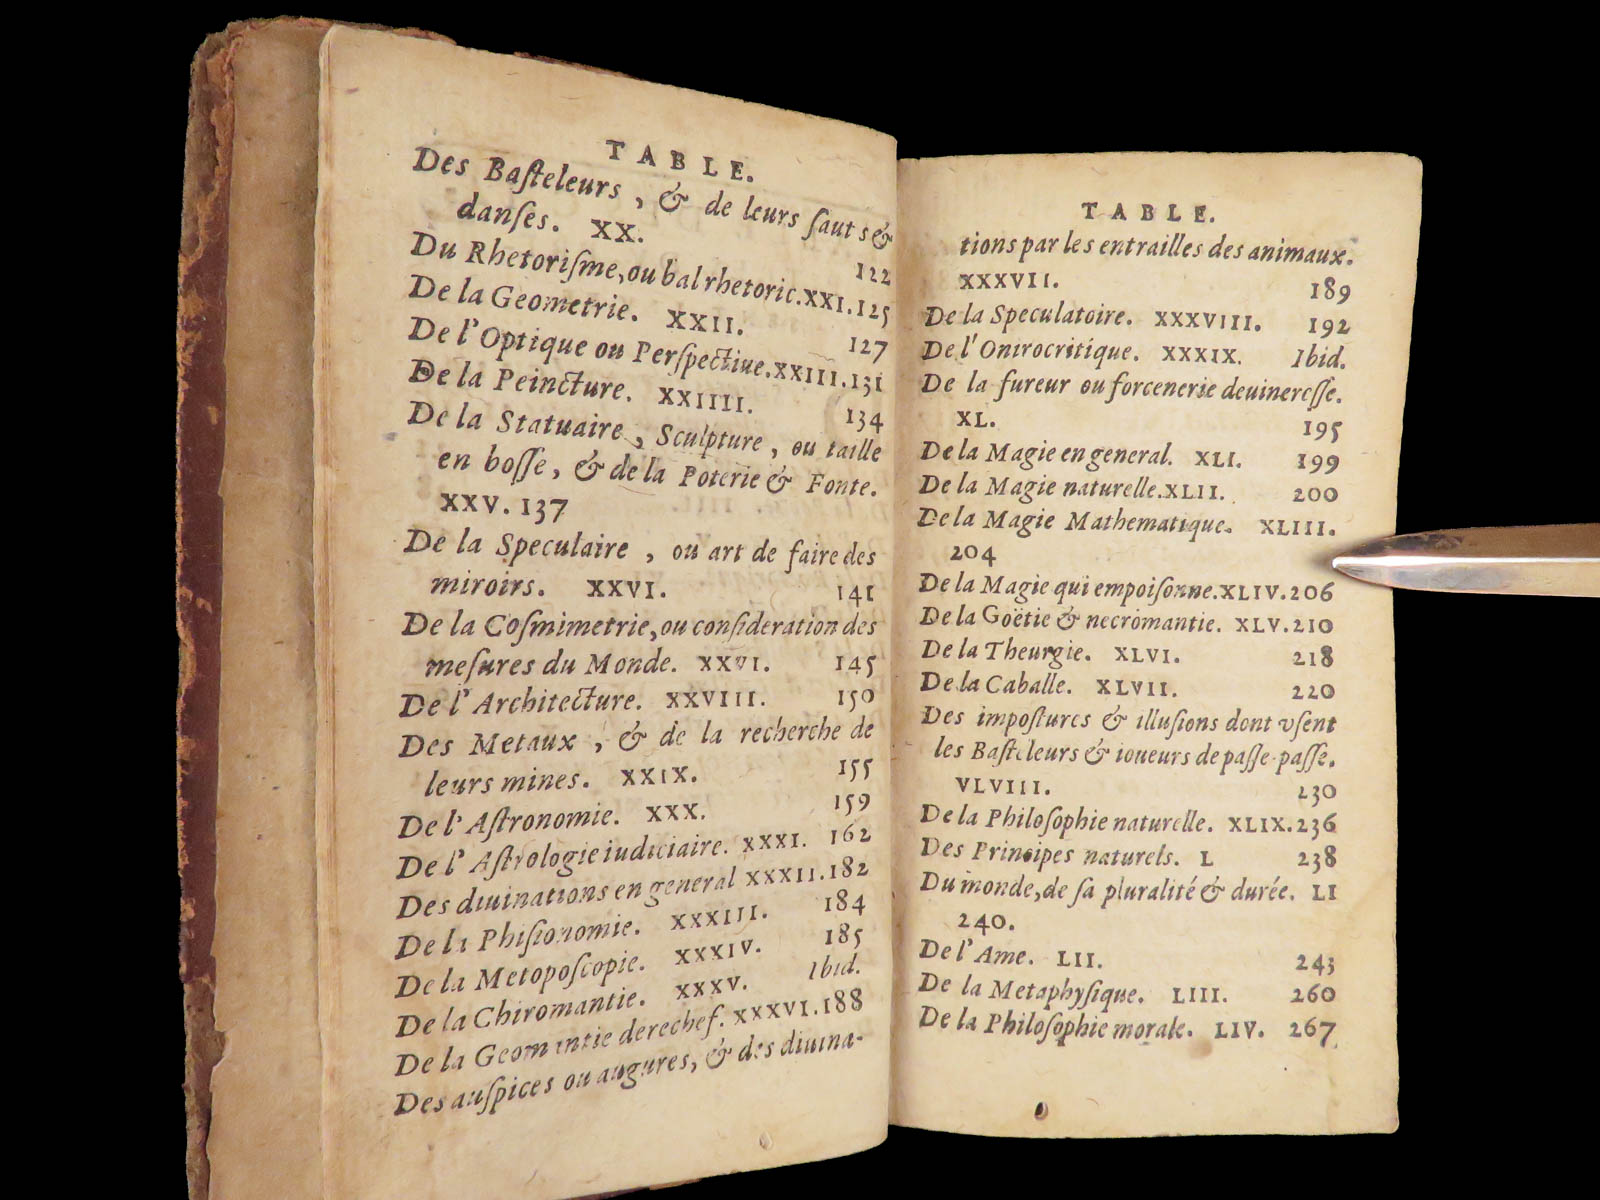 TABLE.
Des Basteleurs, & de leurs sauts &
danses. XX. 122
Du Rhetorisme, ou bal rhetoric. XXI. 125
De la Geometrie. XXII. 127
De l'Optique ou Perspectiue. XXIII. 131
De la Peincture. XXIIII. 134
De la Statuaire, Sculpture, ou taille
en bosse, & de la Poterie & Fonte.
XXV. 137
De la Speculaire, ou art de faire des
miroirs. XXVI. 141
De la Cosmimetrie, ou consideration des
mesures du Monde. XXVI. 145
De l'Architecture. XXVIII. 150
Des Metaux, & de la recherche de
leurs mines. XXIX. 155
De l'Astronomie. XXX. 159
De l'Astrologie iudiciaire. XXXI. 162
Des diuinations en general XXXII. 182
De la Phisionomie. XXXIII. 184
De la Metoposcopie. XXXIV. 185
De la Chiromantie. XXXV. Ibid.
De la Geomantie derechef. XXXVI. 188
Des auspices ou augures, & des diuina-
TABLE.
tions par les entrailles des animaux.
XXXVII. 189
De la Speculatoire. XXXVIII. 192
De l'Onirocritique. XXXIX. Ibid.
De la fureur ou forcenerie deuineresse.
XL. 195
De la Magie en general. XLI. 199
De la Magie naturelle. XLII. 200
De la Magie Mathematique. XLIII.
204
De la Magie qui empoisonne. XLIV. 206
De la Goëtie & necromantie. XLV. 210
De la Theurgie. XLVI. 218
De la Caballe. XLVII. 220
Des impostures & illusions dont vsent
les Basteleurs & ioueurs de passe-passe.
VLVIII. 230
De la Philosophie naturelle. XLIX. 236
Des Principes naturels. L 238
Du monde, de sa pluralité & durée. LI
240.
De l'Ame. LII. 243
De la Metaphysique. LIII. 260
De la Philosophie morale. LIV. 267